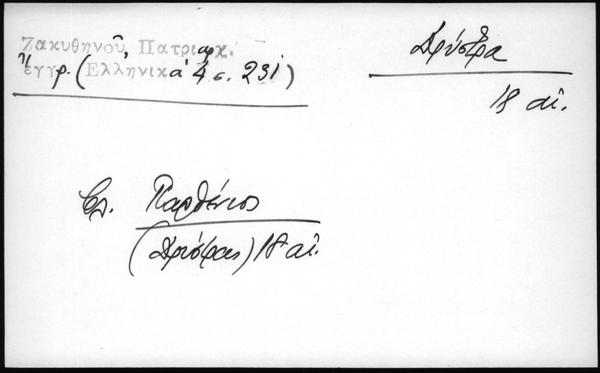 Ζακυθηνοῦ, Πατριαρχ.
ἔγγρ. (Ἑλληνικά 4 σ. 231)
Δρύστρα
18 αἰ.
Βλ. Παρθένιος
(Δρύστρας) 18 αἰ.